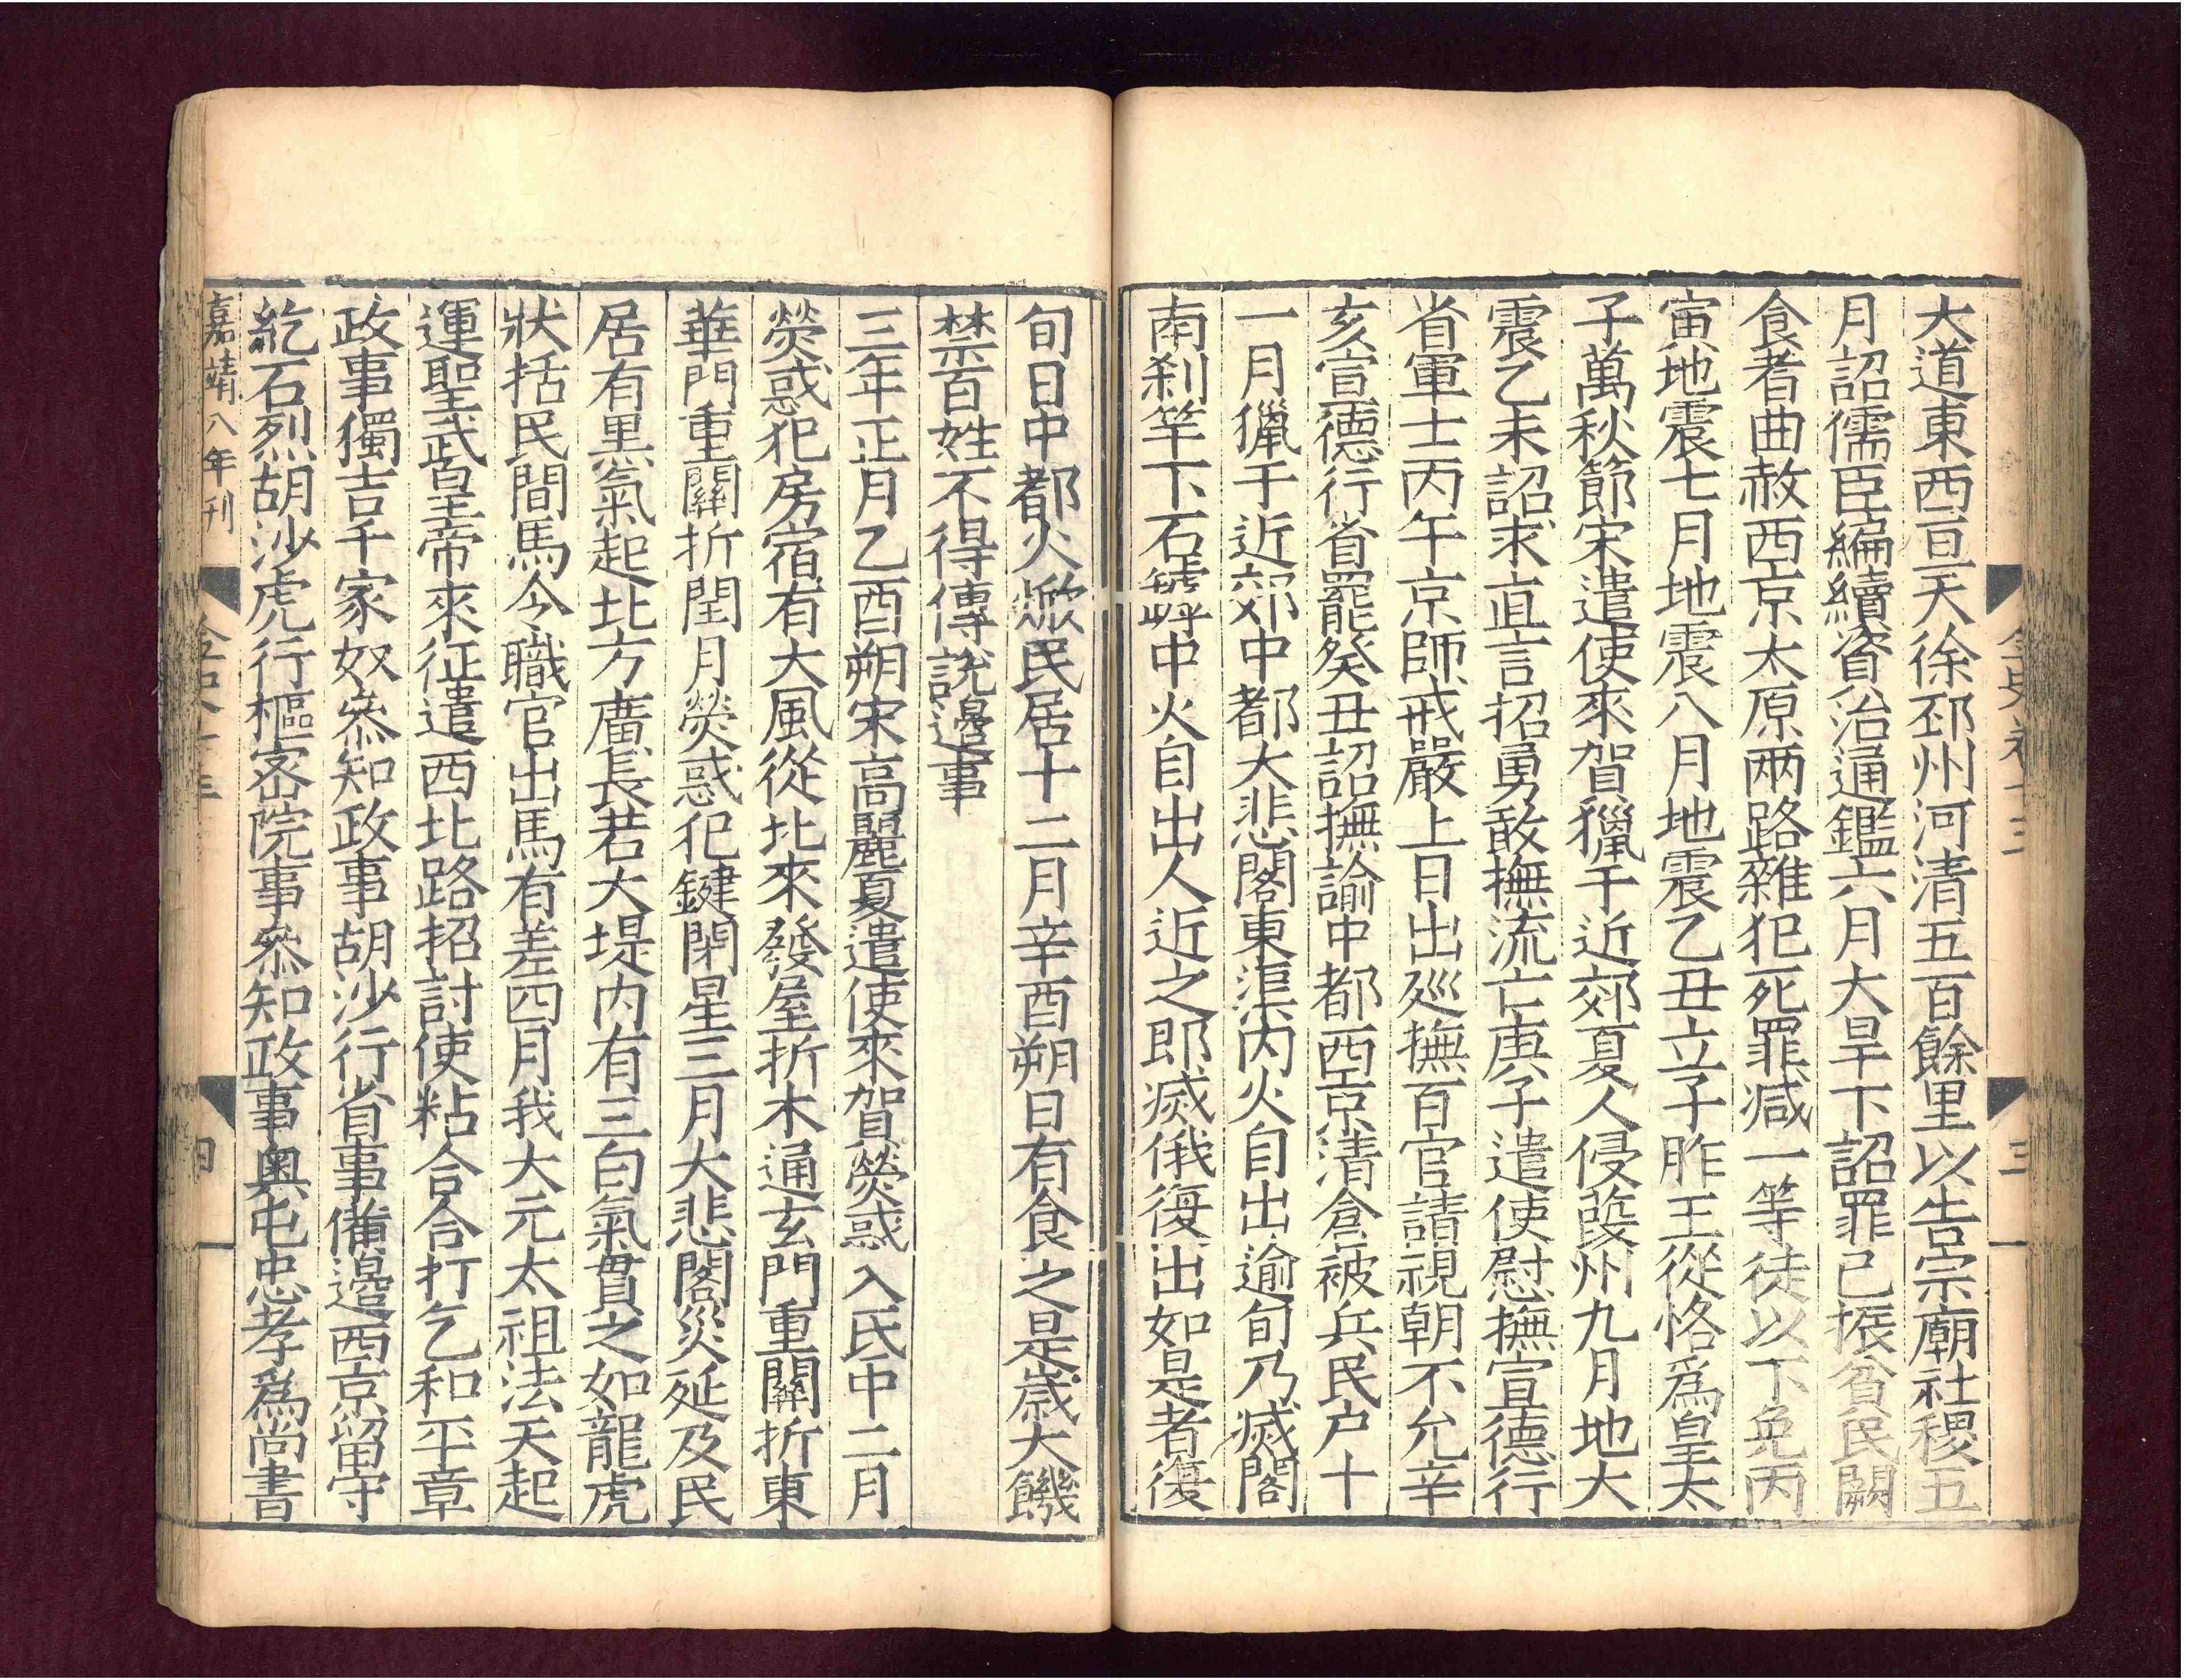 大道東西亘天徐邳州河清五百餘里以告宗廟社稷五
月詔儒臣編續資治通鑑六月大旱下詔罪己振貧民闕
食者曲赦西京太原兩路雜犯死罪减一等徒以下免丙
寅地震七月地震八月地震乙丑立子胙王從恪爲皇太
子萬秋節宋遣使來賀獵于近郊夏人侵葭州九月地大
震乙未詔求直言招勇敢撫流亡庚子遣使慰撫宣德行
省軍士丙午京師戒嚴上日出巡撫百官請視朝不允辛
亥宣德行省罷癸丑詔撫諭中都西京清倉被兵民户十
一月獵于近郊中都大悲閣東渠内火自出逾旬乃滅閣
南刹竿下石罅中火自出人近之即滅俄復出如是者復
旬日中都火焮民居十二月辛酉朔日有食之是歲大饑
禁百姓不得傳說邊事
三年正月乙酉朔宋高麗夏遣使來賀熒惑入氐中二月
熒惑犯房宿有大風從北來發屋折木通玄門重關折東
華門重關折閏月熒惑犯鍵閉星三月大悲閣災延及民
居有黑氣起北方廣長若大堤内有三白氣貫之如龍虎
狀括民間馬令職官出馬有差四月我大元太祖法天起
運聖武皇帝來征遣西北路招討使粘合合打乞和平章
政事獨吉千家奴參知政事胡沙行省事備邊西京留守
紇石烈胡沙虎行樞密院事參知政事奥屯忠孝爲尚書
嘉靖八年刊